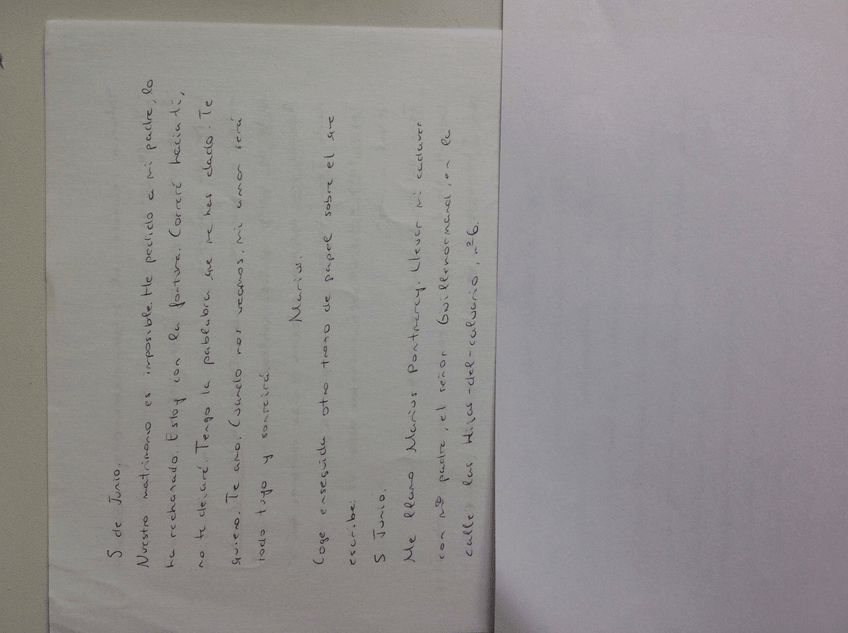 5 de Junio,
Nuestro matrimonio es imposible. He pedido a mi padre, lo
ha rechazado. Estoy con la fortura. Correré hacia ti,
no te dejaré. Tengo la pablabra que me has dado. Te
quiero. Te amo. Cuando nos veamos, mi amor será
todo tuyo y sonreirá.
Marius.
Coge enseguida otro trozo de papel sobre el que
escribe:
5 Junio.
Me llamo Marius Pontmercy. Llevar mi cadaver
con mi padre, el señor Guillenormand, en la
calle las Hijas-del-calvario, nº6.